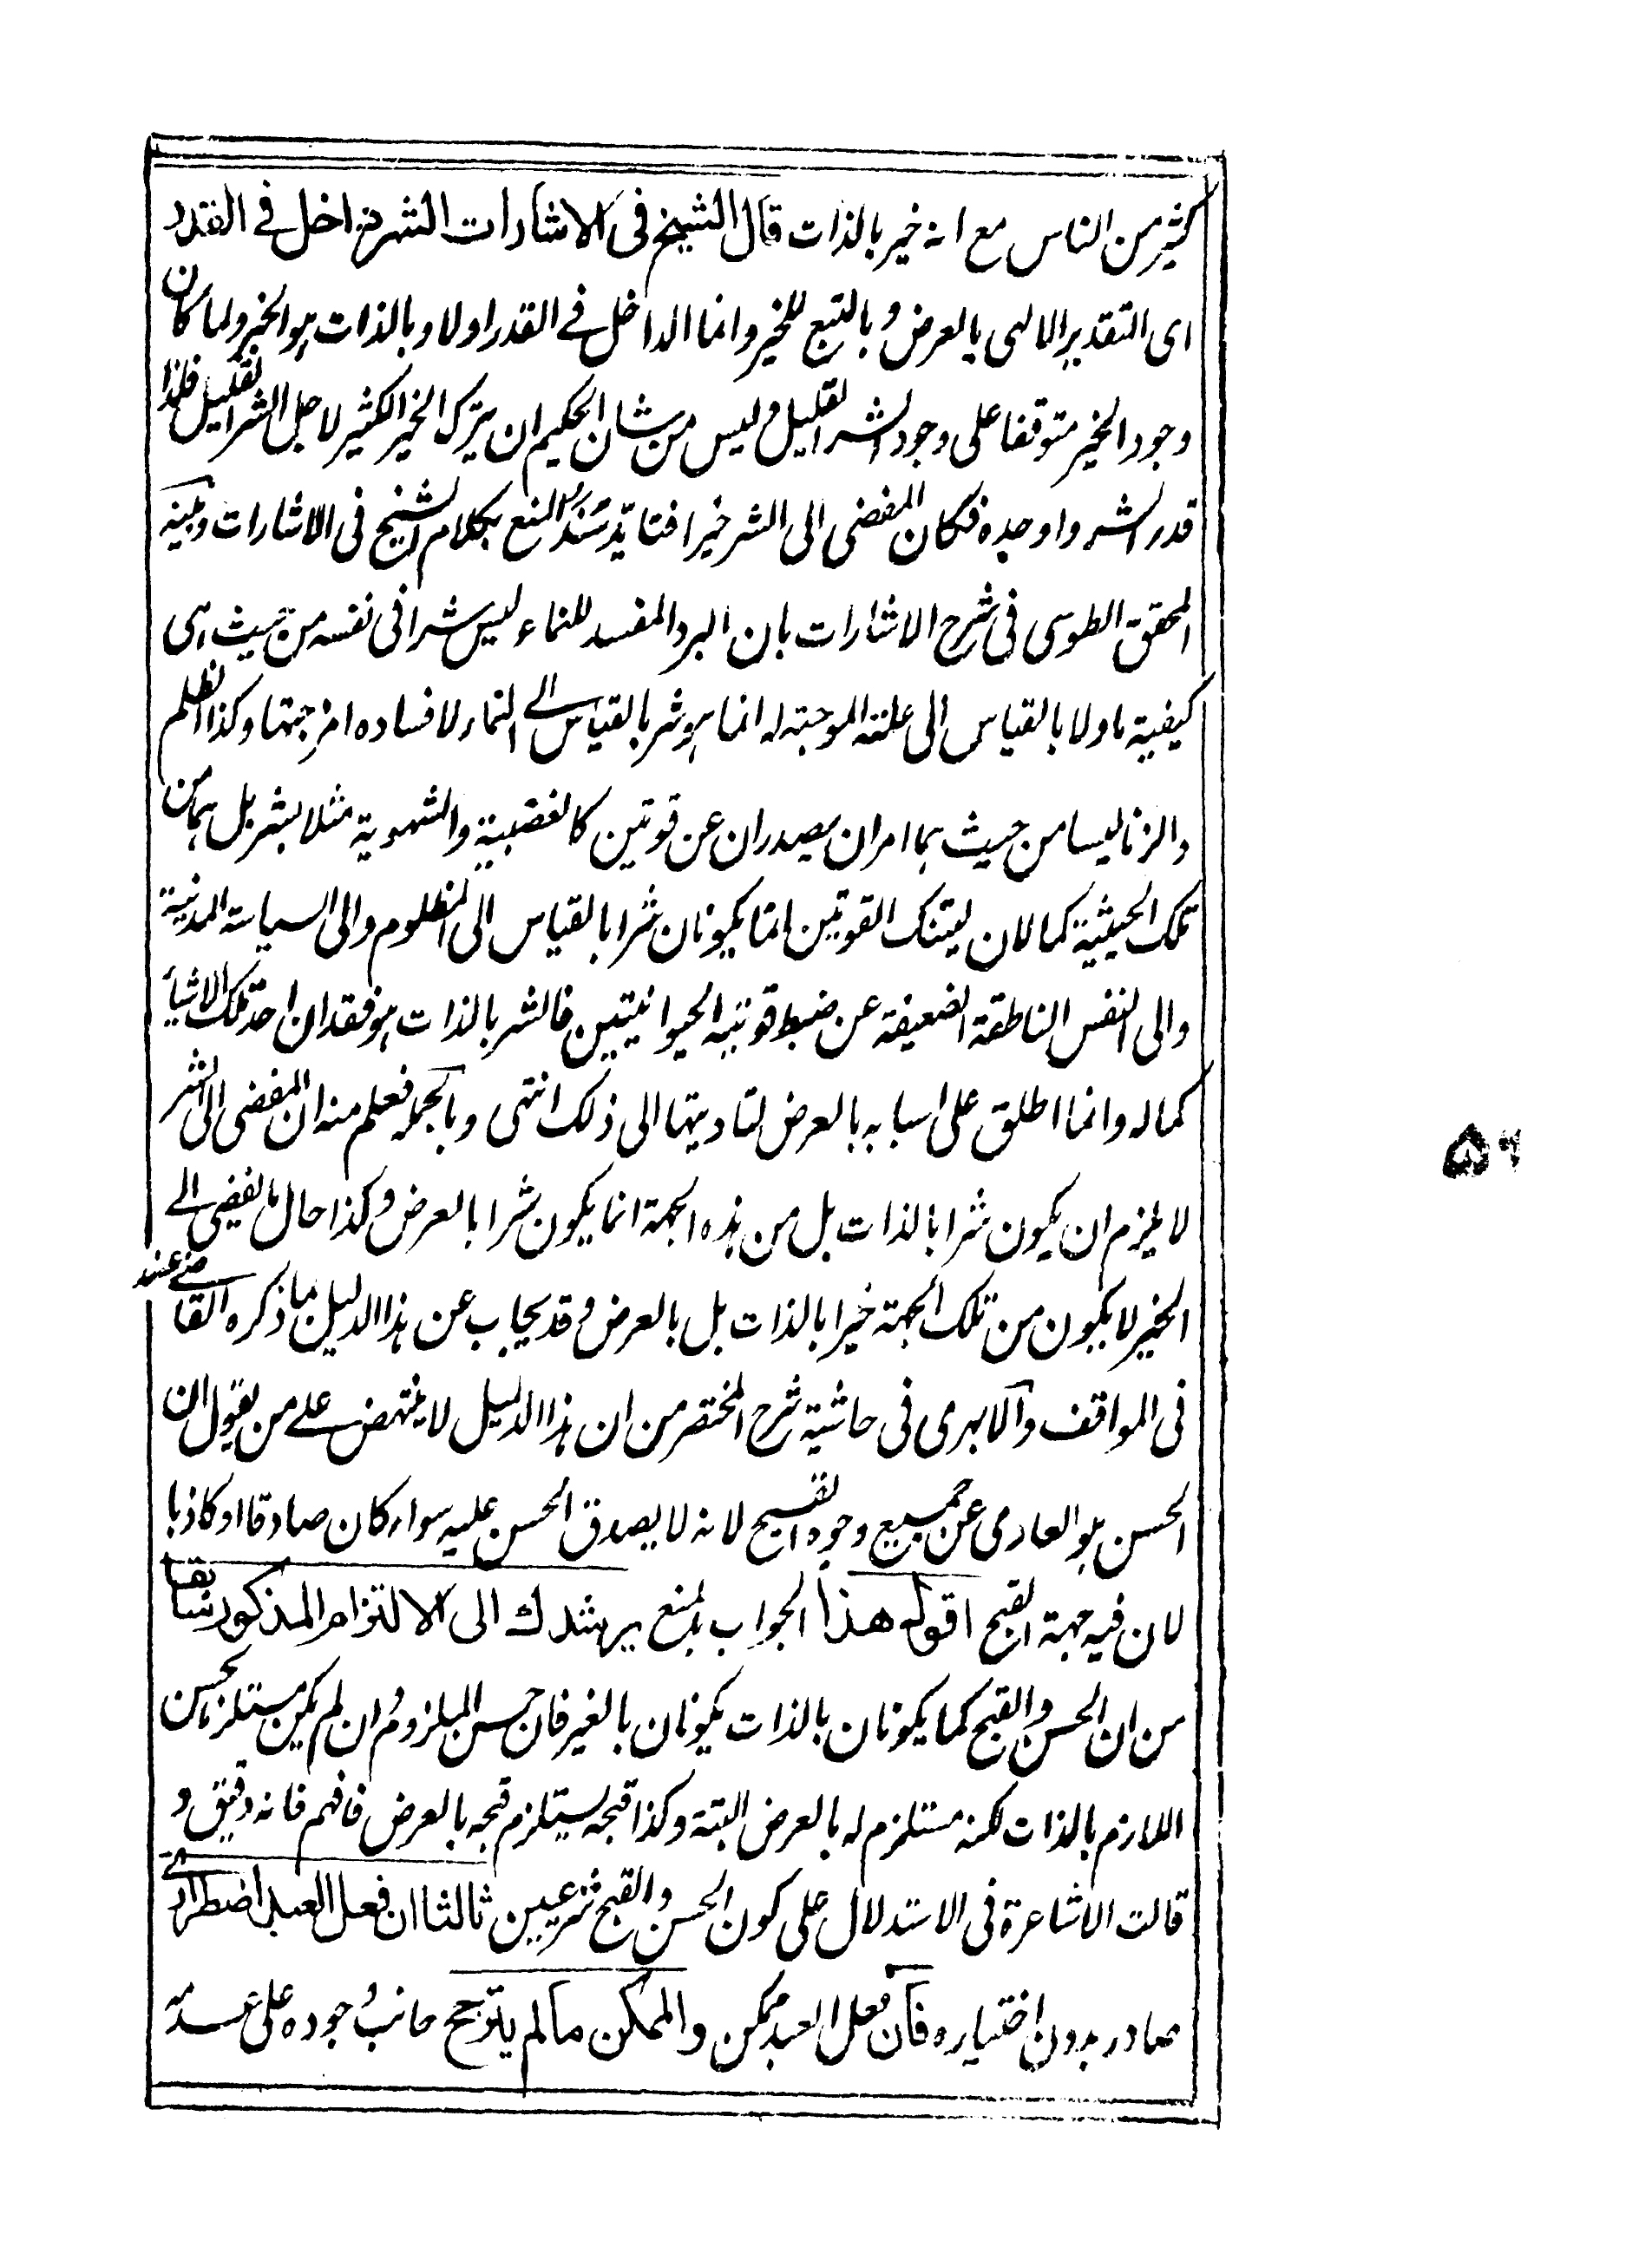 كثير من الناس مع انه خير بالذات قال الشيخ فى الاشارات الشر داخل فى القدر
اى التقدير الالهى بالعرض وبالتبع للخير وانما الداخل فى القدر اولا وبالذات هو الخير ولما كان
وجود الخير متوقفا على وجود الشر القليل وليس من شان الحكيم ان يترك الخير الكثير لاجل الشر القليل فلذا
قدر الشر واوجده فكان المفضى الى الشر خيرا فتايّد سَنَدُ المنع بكلام الشيخ فى الاشارات وبينه
المحقق الطوسى فى شرح الاشارات بان البرد المفسد للثماء ليس شرا فى نفسه من حيث هى
كيفية ما ولا بالقياس الى علته الموجبة له انما هو شر بالقياس الى الثماء لافساده امزجتها وكذا الظلم
والزنا ليسا من حيث هما امران يصدران عن قوتين كالغضبية والشهوية مثلا بشر بل هما من
تلك الحيثية كمالان ليتنك القوتين انما يكونان شرا بالقياس الى المظلوم والى السياسة المدنية
والى النفس الناطقة الضعيفة عن ضبط قوتيه الحيوانيتين فالشر بالذات هو فقدان احد تلك الاشياء
كماله وانما اطلق على اسبابه بالعرض لتاديتها الى ذلك انتهى وبالجملة فعلم منه ان المفضى الى الشر
لا يلزم ان يكون شرا بالذات بل من هذه الجهة انما يكون شرا بالعرض وكذا حال ما يفضى الى
الخير لا يكون من تلك الجهة خيرا بالذات بل بالعرض وقد يجاب عن هذا الدليل ما ذكره القاضى عضد
فى المواقف والابهرى فى حاشية شرح المختصر من ان هذا الدليل لا ينتهض على من يقول ان
الحسن هو العارى عن جميع وجوه القبح لانه لا يصدق الحسن عليه سواء كان صادقا او كاذبا
لان فيه جهة القبح اقول هذا الجواب بالمنع يرشدك الى الالتزام المذكور سابقا
من ان الحسن والقبح كما يكونان بالذات يكونان بالغير فان حسن الملزوم وان لم يكن مستلزما لحسن
اللازم بالذات لكنه مستلزم له بالعرض البتة وكذا قبحه يستلزم قبحه بالعرض فافهم فانه دقيق و
قالت الاشاعرة فى الاستدلال على كون الحسن والقبح شرعيين ثالثا ان فعل العبد اضطرارى
صادر بدون اختياره فان فعل العبد ممكن والممكن مالم يترجح جانب وجوده على عدمه
۵۶